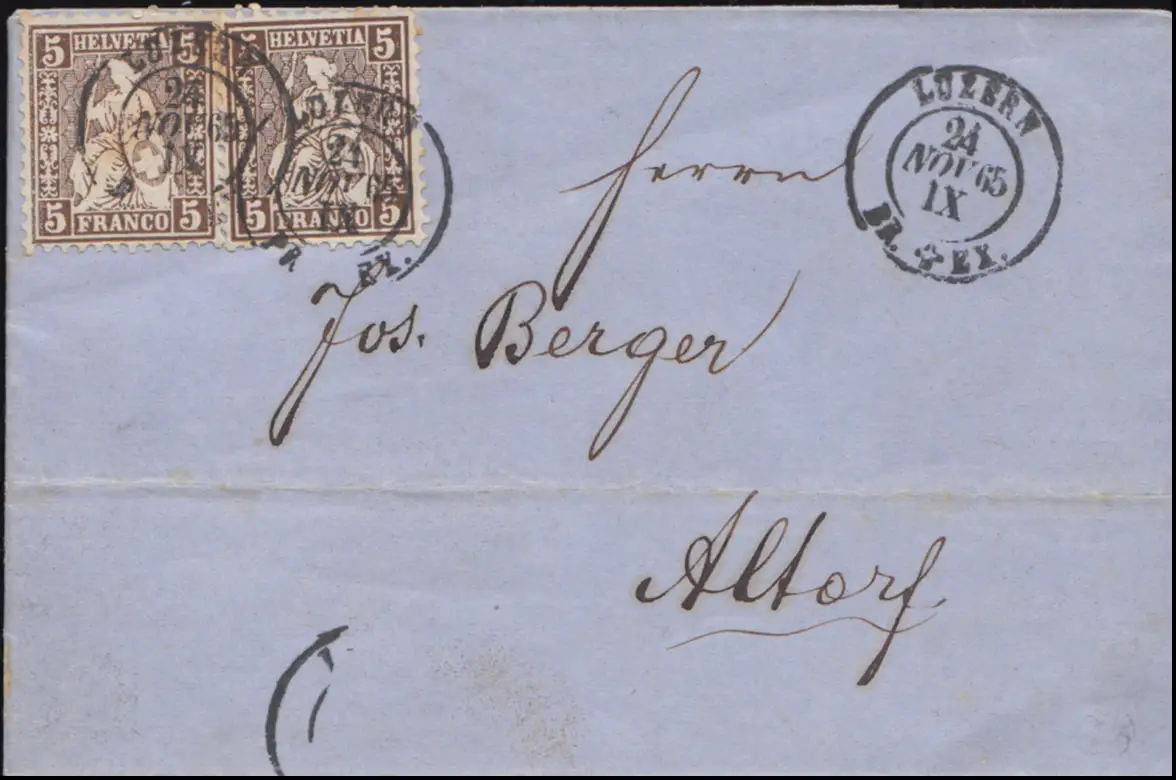 5 HELVETIA 5
5 FRANCO 5
5 HELVETIA 5
5 FRANCO 5
LUZERN
24
NOV 65
IX
LUZERN
24
NOV 65
IX
BR. EX.
LUZERN
24
NOV 65
IX
BR. EX.
Herrn
Jos. Berger
Altorf